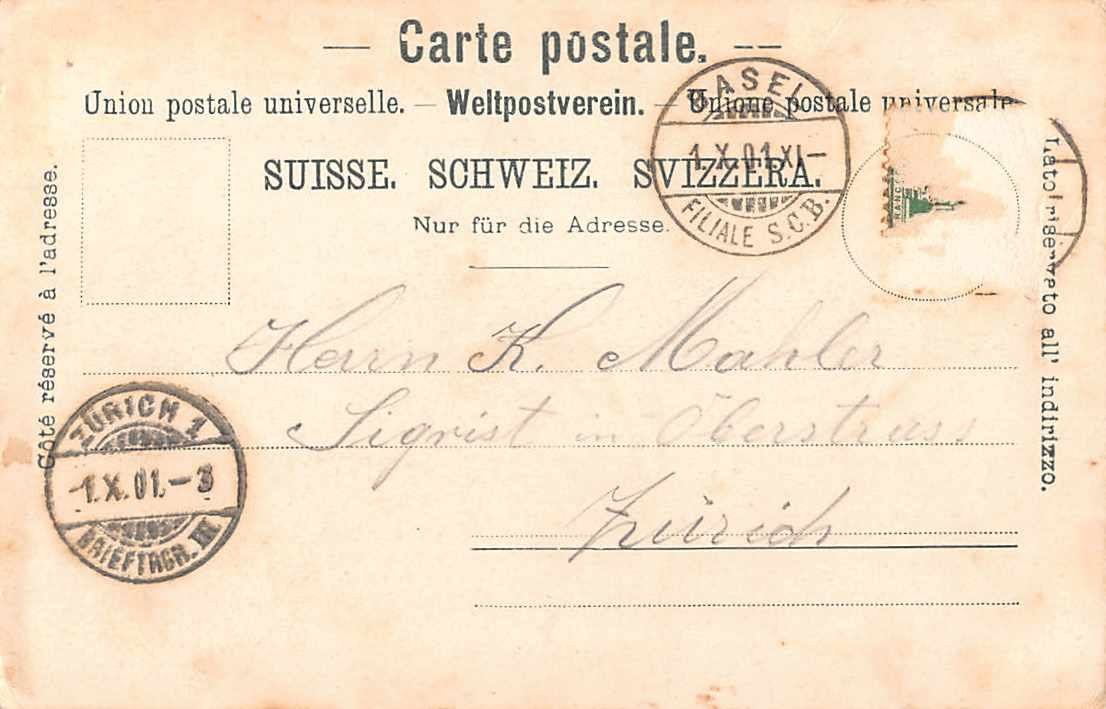 Carte postale.
Union postale universelle. – Weltpostverein. – Unione postale universale
SUISSE. SCHWEIZ. SVIZZERA.
Nur für die Adresse.
Côté réservé à l'adresse.
Lato riservato all' indirizzo.
BASEL
1.X.01.XI–
FILIALE S.C.B.
FRANCO
Herrn K. Mahler
Sigrist in Oberstrass
Zürich
ZÜRICH 1
-1.X.01.–3
BRIEFTRGR. III